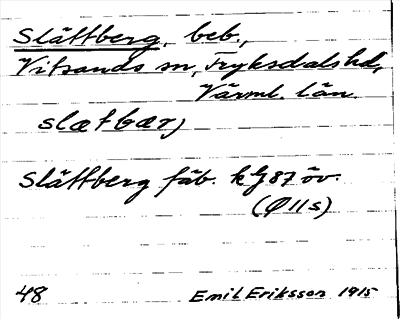 Slättberg, beb.,
Vitsands sn, Fryksdals hd,
Värml. län.
slætbær)
Slättberg fäb. kfg 87 öv.
(Ø 11 s)
48 Emil Eriksson 1915